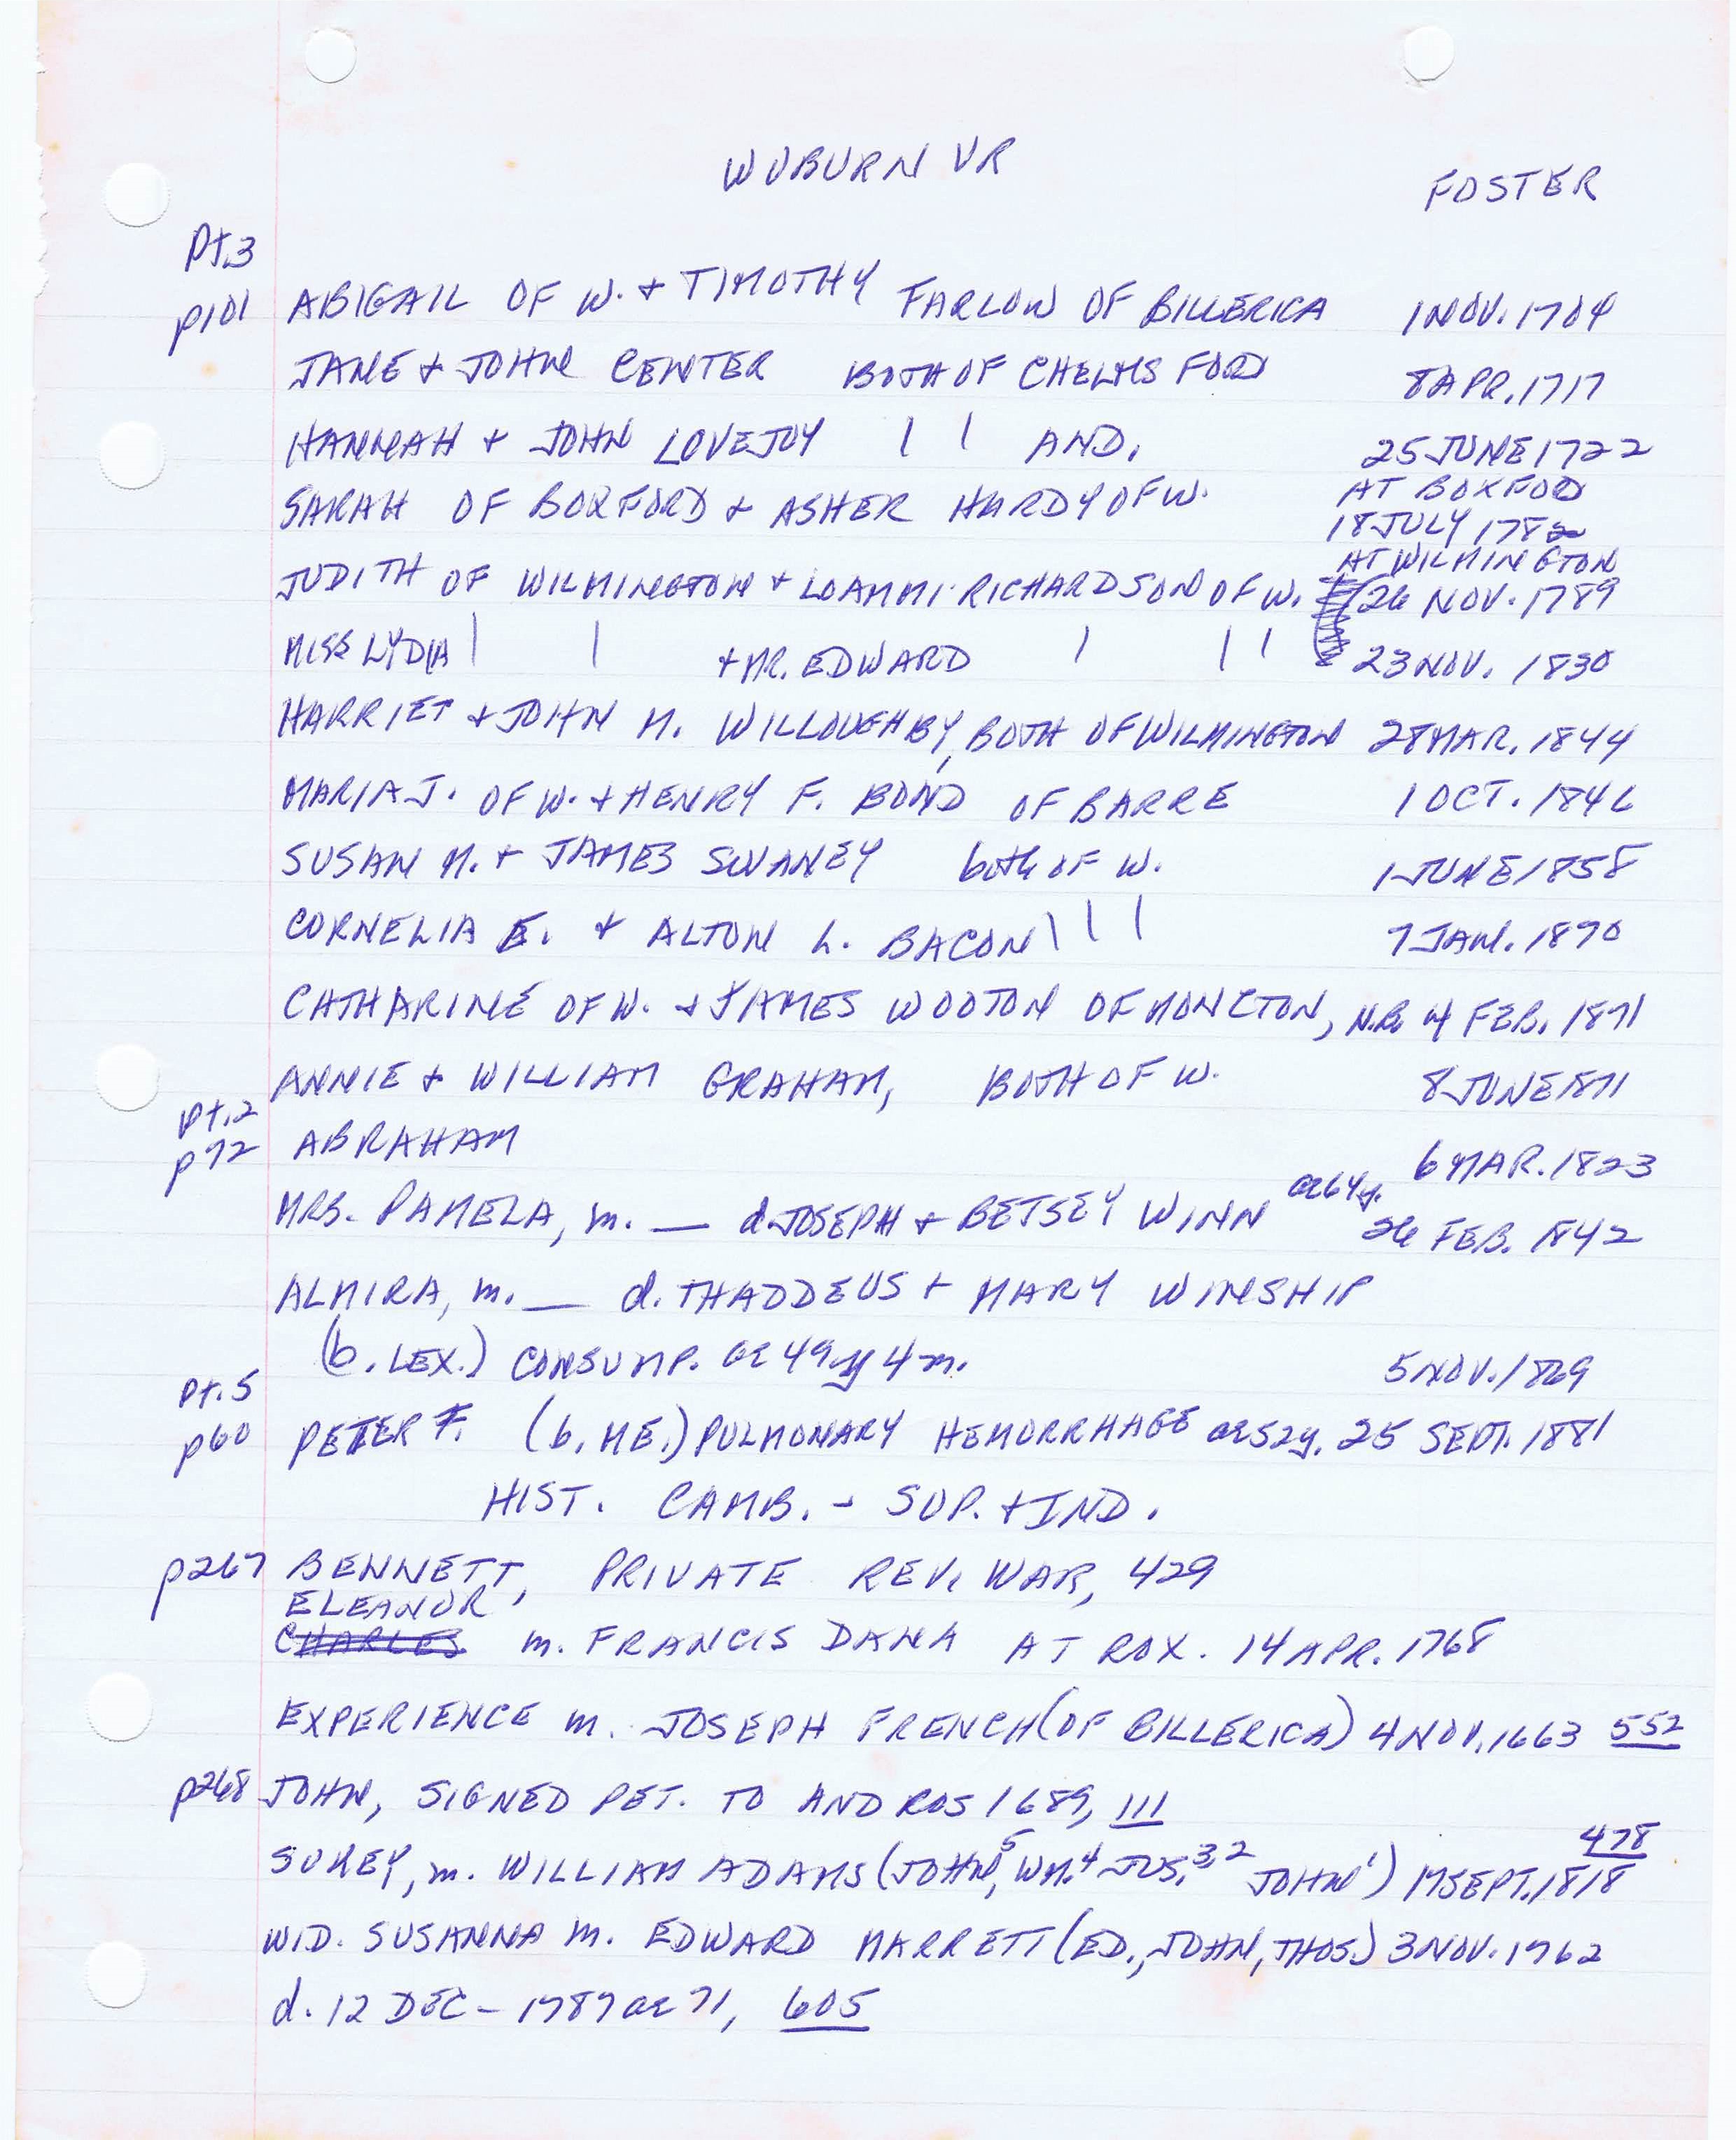 WOBURN VR
FOSTER
Pt.3
p101 ABIGAIL OF W. + TIMOTHY FARLOW OF BILLERICA 1 NOV. 1704
JANE + JOHN CENTER BOTH OF CHELMSFORD 8 APR. 1717
HANNAH + JOHN LOVEJOY | | AND. 25 JUNE 1722
AT BOXFOD
SARAH OF BOXFORD + ASHER HARDY OF W. 18 JULY 178
AT WILMINGTON
JUDITH OF WILMINGTON + LOAMMI RICHARDSON OF W. 26 NOV. 1789
MISS LYDIA | | + MR. EDWARD | | | 23 NOV. 1830
HARRIET + JOHN M. WILLOUGHBY, BOTH OF WILMINGTON 28 MAR. 1844
MARIA J. OF W. + HENRY F. BOND OF BARRE 1 OCT. 1846
SUSAN M. + JAMES SWANEY both OF W. 1 JUNE 1858
CORNELIA E. + ALTON L. BACON | | | 7 JAN. 1870
CATHARINE OF W. + JAMES WOOTON OF MONCTON, N.B. 4 FEB. 1871
ANNIE + WILLIAM GRAHAM, BOTH OF W. 8 JUNE 1871
Pt.2
p72 ABRAHAM 6 MAR. 1823
MRS. PAMELA, m. — d. JOSEPH + BETSEY WINN ae 64y. 26 FEB. 1842
ALMIRA, m. — d. THADDEUS + MARY WINSHIP
(b. LEX.) CONSUMP. ae 49y 4m. 5 NOV. 1869
Pt.5
p60 PETER F. (b. ME.) PULMONARY HEMORRHAGE ae 52y. 25 SEPT. 1881
HIST. CAMB. - SUP. + IND.
p267 BENNETT, PRIVATE REV. WAR, 429
ELEANOR,
CHARLES m. FRANCIS DANA AT ROX. 14 APR. 1768
EXPERIENCE m. JOSEPH FRENCH (OF BILLERICA) 4 NOV. 1663 552
p268 JOHN, SIGNED PET. TO ANDROS 1689, 111
478
SUKEY, m. WILLIAM ADAMS (JOHN5, WM.4 JOS.3,2 JOHN1) 17 SEPT. 1818
WID. SUSANNA m. EDWARD MARRETT (ED., JOHN, THOS.) 3 NOV. 1762
d. 12 DEC - 1787 ae 71, 605